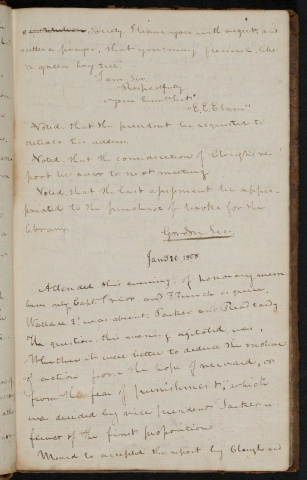 Society, I leave you with regret, and
utter a prayer, that you may flourish like
a green bay tree."
"I am, Sir
Respectfully
your humble servt"
"E. E. Evans"
Voted, that the president be requested to
the address.
Voted, that the consideration of Clough's re-
port be to next meeting.
Voted, that the last assessment be appro-
priated to the purchase of books for the
library.
Gordon Sec.
Jan'y 26 1808
Attended this evening, of honorary mem
bers only Capt. Prior, and French esquire,
Wallace 2d was absent. Parker and Read tardy
The question this evening agitated was,
Whether it were better to deduce the motive
of action from the hope of reward, or
from the fear of punishment; which
was decided by vice president Parker in
favor of the first proposition.
Moved to accept the report by Clough and